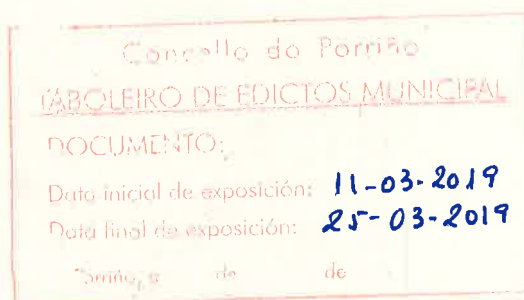 Concello do Porriño
TABOLEIRO DE EDICTOS MUNICIPAL
DOCUMENTO:
Data inicial de exposición: 11-03-2019
Data final de exposición: 25-03-2019
Porriño, a de de